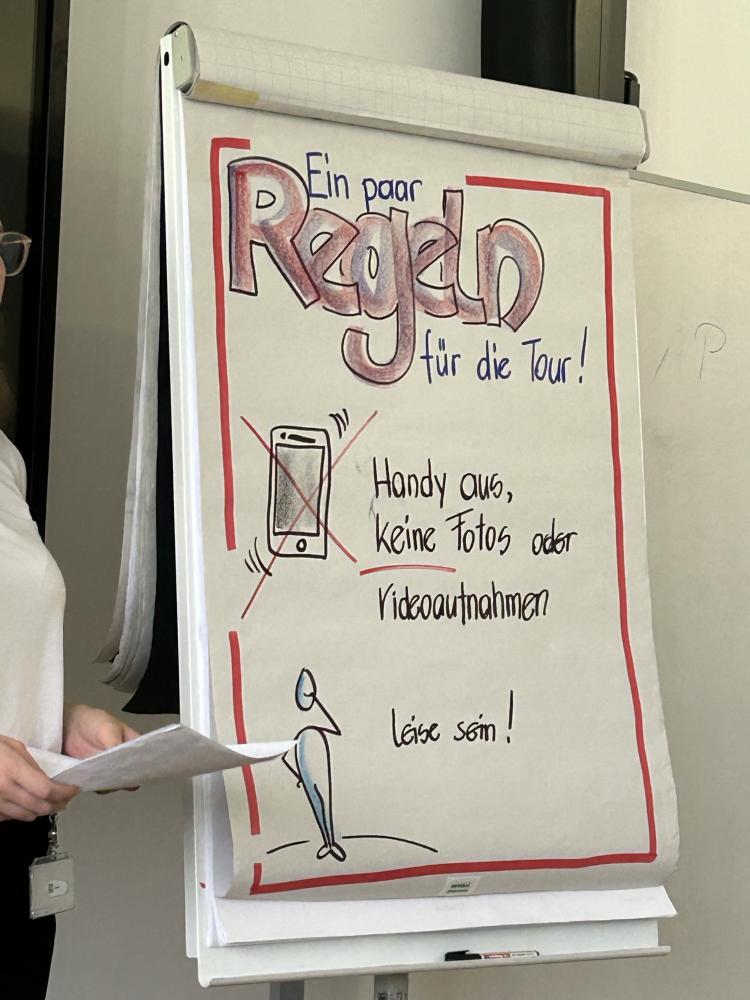 Ein paar
Regeln
für die Tour!
Handy aus,
keine Fotos oder
Videoaufnahmen
Leise sein!
P